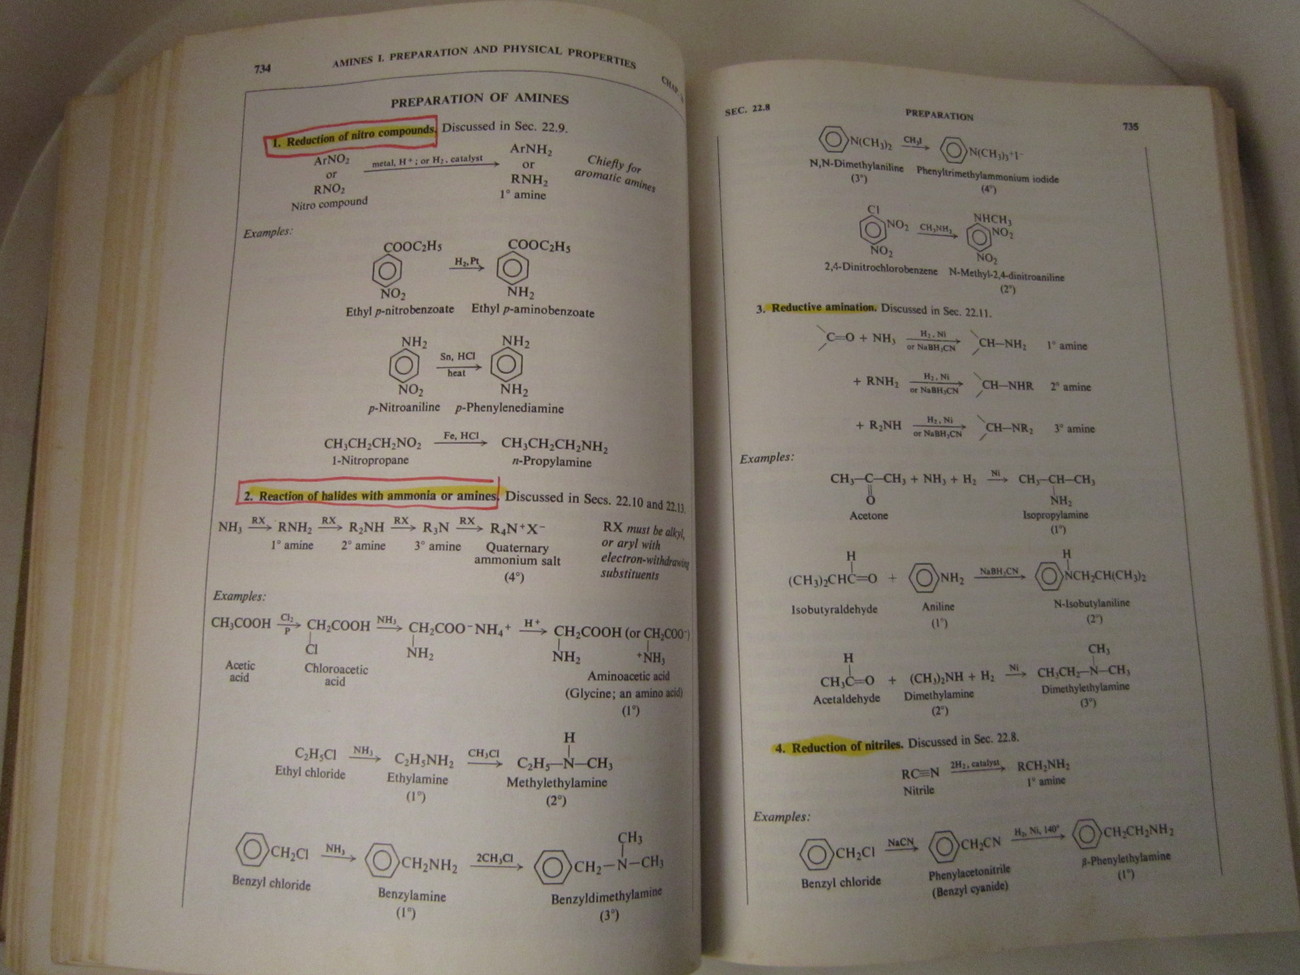 734
AMINES I. PREPARATION AND PHYSICAL PROPERTIES
CHAP.
PREPARATION OF AMINES
1. Reduction of nitro compounds. Discussed in Sec. 22.9.
ArNO₂ metal, H⁺; or H₂, catalyst ArNH₂ Chiefly for
or or aromatic amines
RNO₂ RNH₂
Nitro compound 1° amine
Examples:
COOC₂H₅ COOC₂H₅
H₂, Pt
NO₂ NH₂
Ethyl p-nitrobenzoate Ethyl p-aminobenzoate
NH₂ NH₂
Sn, HCl
heat
NO₂ NH₂
p-Nitroaniline p-Phenylenediamine
CH₃CH₂CH₂NO₂ Fe, HCl CH₃CH₂CH₂NH₂
1-Nitropropane n-Propylamine
2. Reaction of halides with ammonia or amines. Discussed in Secs. 22.10 and 22.13.
NH₃ RX RNH₂ RX R₂NH RX R₃N RX R₄N⁺X⁻ RX must be alkyl,
1° amine 2° amine 3° amine Quaternary or aryl with
ammonium salt electron-withdrawing
(4°) substituents
Examples:
CH₃COOH Cl₂ P CH₂COOH NH₃ CH₂COO⁻NH₄⁺ H⁺ CH₂COOH (or CH₂COO⁻)
Cl NH₂ NH₂ ⁺NH₃
Acetic Chloroacetic Aminoacetic acid
acid acid (Glycine; an amino acid)
(1°)
H
C₂H₅Cl NH₃ C₂H₅NH₂ CH₃Cl C₂H₅—N—CH₃
Ethyl chloride Ethylamine Methylethylamine
(1°) (2°)
CH₃
CH₂Cl NH₃ CH₂NH₂ 2CH₃Cl CH₂—N—CH₃
Benzyl chloride Benzylamine Benzyldimethylamine
(1°) (3°)
SEC. 22.8 PREPARATION 735
N(CH₃)₂ CH₃I N(CH₃)₃⁺I⁻
N,N-Dimethylaniline Phenyltrimethylammonium iodide
(3°) (4°)
Cl NHCH₃
NO₂ CH₃NH₂ NO₂
NO₂ NO₂
2,4-Dinitrochlorobenzene N-Methyl-2,4-dinitroaniline
(2°)
3. Reductive amination. Discussed in Sec. 22.11.
C=O + NH₃ H₂, Ni or NaBH₃CN CH—NH₂ 1° amine
+ RNH₂ H₂, Ni or NaBH₃CN CH—NHR 2° amine
+ R₂NH H₂, Ni or NaBH₃CN CH—NR₂ 3° amine
Examples:
CH₃—C—CH₃ + NH₃ + H₂ Ni CH₃—CH—CH₃
O NH₂
Acetone Isopropylamine
(1°)
H H
(CH₃)₂CHC=O + NH₂ NaBH₃CN NCH₂CH(CH₃)₂
Isobutyraldehyde Aniline N-Isobutylaniline
(1°) (2°)
H CH₃
CH₃C=O + (CH₃)₂NH + H₂ Ni CH₃CH₂—N—CH₃
Acetaldehyde Dimethylamine Dimethylethylamine
(2°) (3°)
4. Reduction of nitriles. Discussed in Sec. 22.8.
RC≡N 2H₂, catalyst RCH₂NH₂
Nitrile 1° amine
Examples:
CH₂Cl NaCN CH₂CN H₂, Ni, 140° CH₂CH₂NH₂
Benzyl chloride Phenylacetonitrile β-Phenylethylamine
(Benzyl cyanide) (1°)